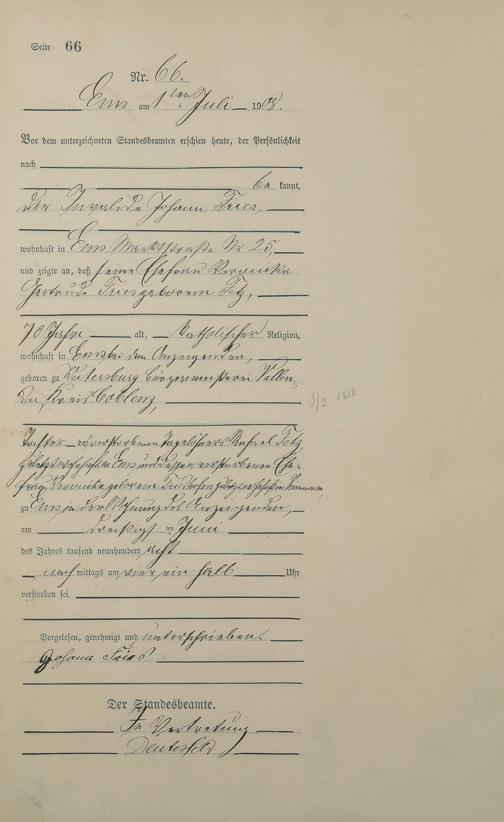 Seite: 66
Nr. 66.
Ems am 1ten Juli 1908.
Vor dem unterzeichneten Standesbeamten erschien heute, der Persönlichkeit
nach
be kannt,
der Invalide Johann Fries
wohnhaft in Ems Marktstraße Nr 25,
und zeigte an, daß seine Ehefrau Veronika
Gertrude Fries geborene Fetz,
70 Jahre alt, katholischer Religion,
wohnhaft in Ems bei dem Anzeigenden,
geboren zu Bürgermeisterei Vallen-
dar, Kreis Coblenz,
3/2 1838
Tochter des verstorbenen Tagelöhners Fetz
zuletzt wohnhaft in Ems und dessen verstorbenen Ehe-
frau Veronika geborene zuletzt wohnhaft in
zu Ems in der Wohnung des Anzeigenden,
am dreißigst en Juni
des Jahres tausend neunhundert acht
nach mittags um vier ein halb Uhr
verstorben sei.
Vorgelesen, genehmigt und unterschrieben.
Johann Fries
Der Standesbeamte.
In Vertretung